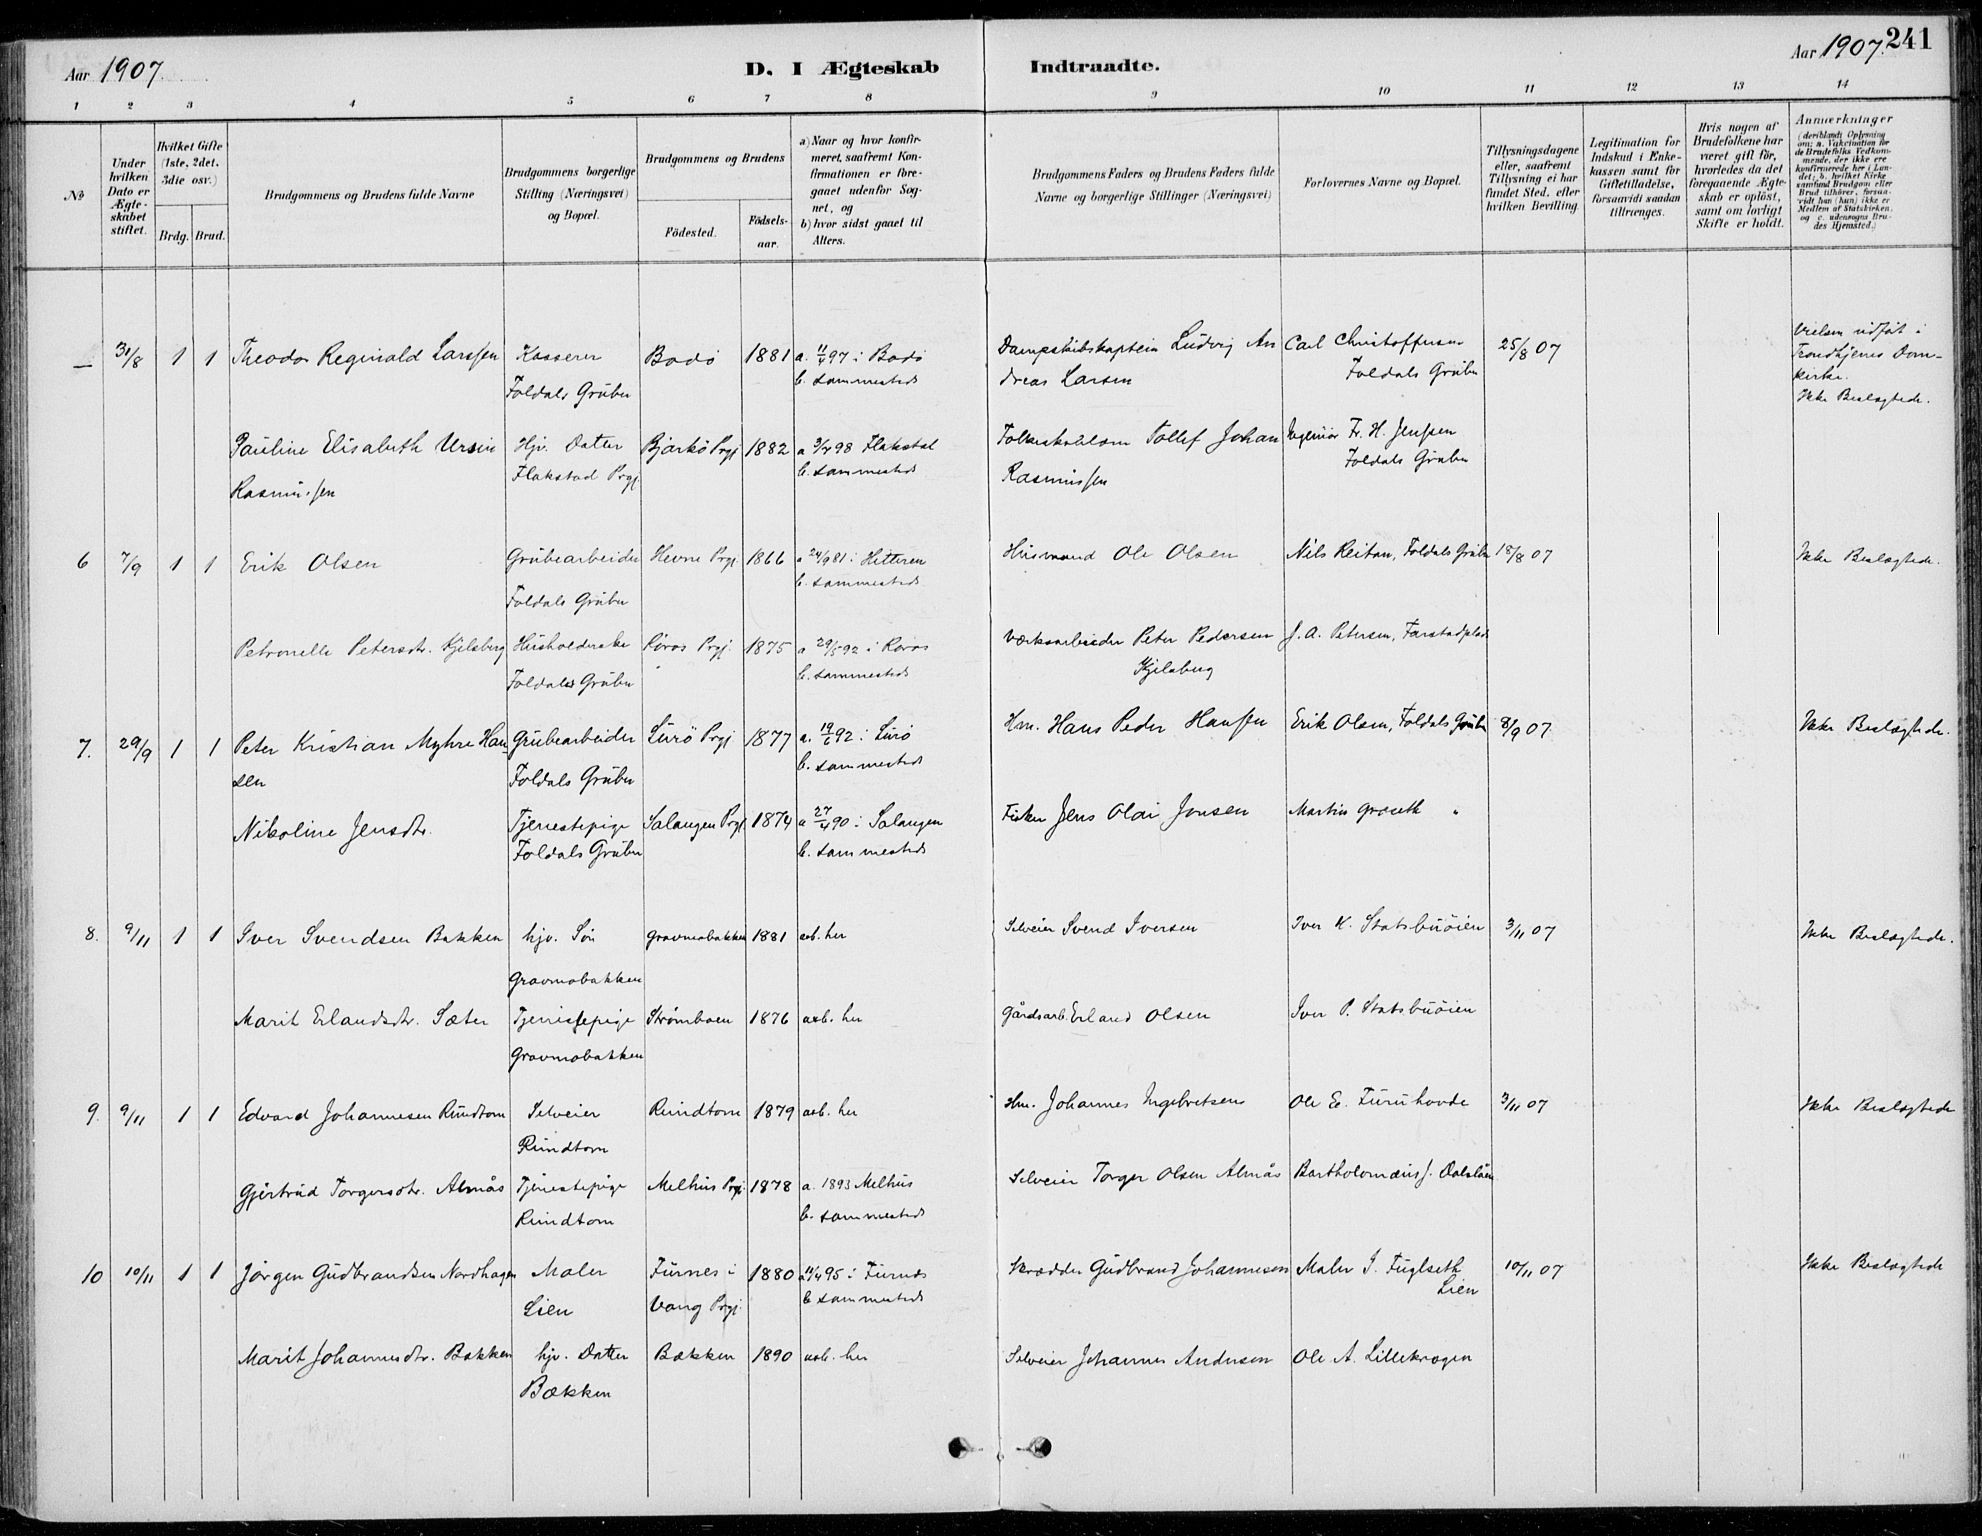 Aar 1907.
D. I Ægteskab
Indtraadte.
Aar 1907. 241
1 2 3 4 5 6 7 8 9 10 11 12 13 14
№
Under hvilken Dato er Ægteskabet stiftet.
Hvilket Gifte (1ste, 2det, 3die osv.)
Brdg. Brud.
Brudgommens og Brudens fulde Navne
Brudgommens borgerlige Stilling (Næringsvei) og Bopæl.
Brudgommens og Brudens
Födested.
Födsels-aar.
a) Naar og hvor konfir-
meret, saafremt Kon-
firmationen er fore-
gaaet udenfor Sog-
net, og
b) hvor sidst gaaet til
Alters.
Brudgommens Faders og Brudens Faders fulde
Navne og borgerlige Stillinger (Næringsvei)
Forlovernes Navne og Bopæl.
Tillysningsdagene
eller, saafremt
Tillysning ei har
fundet Sted, efter
hvilken Bevilling.
Legitimation for
Indskud i Enke-
kassen samt for
Giftetilladelse,
forsaavidt saadan
tiltrænges.
Hvis nogen af
Brudefolkene har
været gift för,
hvorledes da det
foregaaende Ægte-
skab er oplöst,
samt om lovligt
Skifte er holdt.
Anmærkninger
(deriblandt Oplysning
om: a. Vakcination for
de Brudefolks Vedkom-
mende, der ikke ere
konfirmerede her i Lan-
det; b. hvilket Kirke
samfund Brudgom eller
Brud tilhörer, forsaa-
vidt han (hun) ikke er
Medlem af Statskirken,
og c. udensogns Bru-
des Hjemsted.)
— 31/8 1 1 Theodor Reginald Larssen Kasserer Bodö 1881 a. 11/4 97 i Bodö Dampskibskaptein Ludvig An Carl Christoffersen 25/8 07 Vielsen udført i
Foldals Gruber b. sammesteds dreas Larsen Foldals Gruber Trondhjems Dom-
kirke.
Ikke Beslægtede.
Pauline Elisabeth Ursin Hjv. Datter Bjarkö Prgj 1882 a 3/4 98 Flakstad Tollef Johan Ingeniör Fr. H. Jenssen
Rasmussen Flakstad Prgj. b. sammesteds Rasmussen Foldals Gruber
6 7/9 1 1 Erik Olsen Grubearbeider Hevne Prgj. 1866 a 24/9 81 i Hitteren Husmand Ole Olsen Nils Reitan, Foldals Gruber 18/8 07 Ikke Beslægtede.
Foldals Gruber b. sammesteds
Petronelle Petersdtr. Kjelsberg Husholderske Röros Prgj. 1875 a 29/5 92 i Röros Værksarbeider Peter Pedersen J. A. Petersen, Farstadplads
Foldals Gruber b. sammesteds Kjelsberg
7. 29/9 1 1 Peter Kristian Myhre Han Grubearbeider Lurö Prgj 1877 a. 19/6 92 i Lurö Hm. Hans Peder Hanssen Erik Olsen, Foldals Gruber 8/9 07 Ikke Beslægtede.
sen Foldals Gruber b. sammesteds
Nikoline Jensdtr. Tjenestepige Salangen Prgj. 1874 a 27/4 90 i Salangen Fisker Jens Olai Jonsen Martin Graneth "
Foldals Gruber b. sammesteds
8. 9/11 1 1 Iver Svendsen Bakken hjv. Sön Gravmobakken 1881 aeb. her Selveier Svend Iversen Iver K. Statsbuöien 3/11 07 Ikke Beslægtede.
Gravmobakken
Marit Erlandsdtr. Sæter Tjenestepige Strömboen 1876 aeb. her Gårdsarb. Erland Olsen Iver P. Statsbuöien
Gravmobakken
9. 9/11 1 1 Edvard Johannesen Rundtom Selveier Rundtom 1879 aeb. her Hm. Johannes Ingebretsen Ole E. Furuhovde 3/11 07 Ikke Beslægtede
Rundtom
Gjertrud Torgersdtr. Almås Tjenestepige Melhus Prgj. 1878 a. 1893 Melhus Selveier Torger Olsen Almås Bartholomæus J. Dalslåen
Rundtom b. sammesteds
10 10/11 1 1 Jörgen Gudbrandsen Nordhagen Maler Furnes i 1880 a 11/4 95 i Furnes Skrædder Gudbrand Johannesen Maler J. Fuglseth 10/11 07 Ikke Beslægtede
Lien Vang Prgj. b sammesteds Lien
Marit Johannesdtr. Bækken hjv. Datter Bækken 1890 aeb. her Selveier Johannes Andersen Ole A. Lillekrogen
Bækken